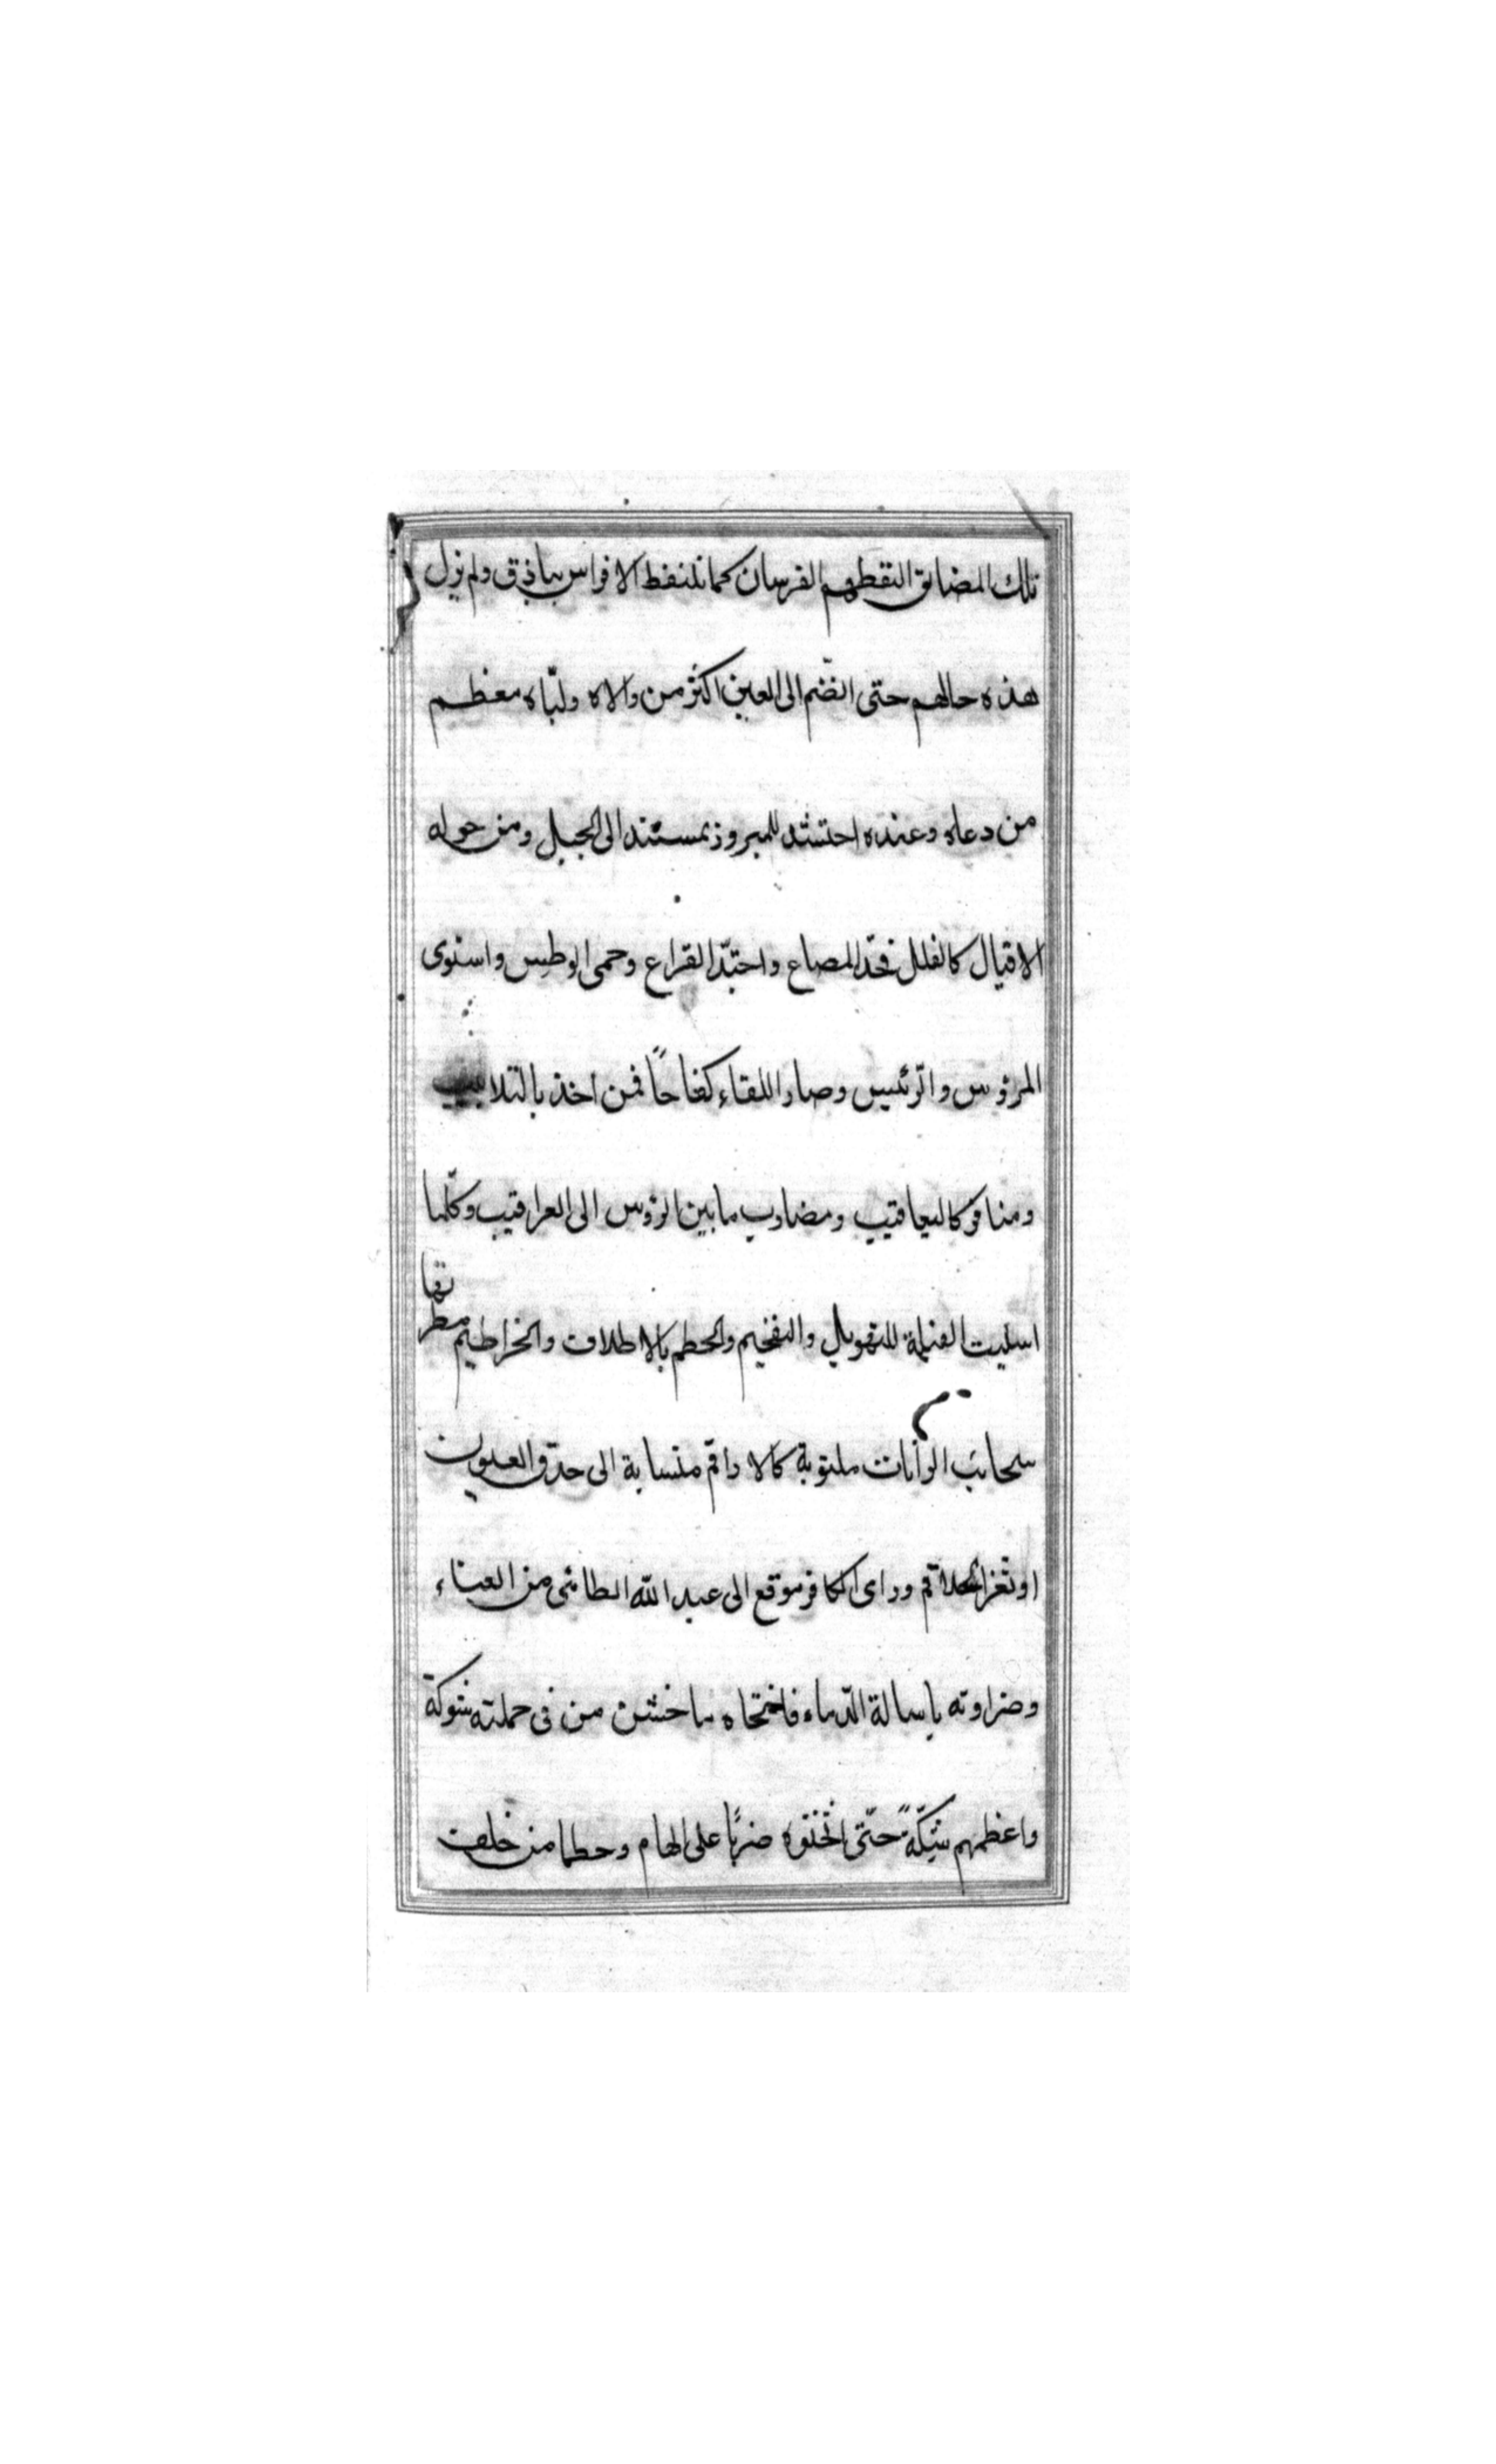 تلك المضايق التقطهم الفرسان كما تلتقط الافراس بياذق ولم يزل
هذه حالهم حتى انضّم الى اللعين اكثر من والاه ولبّاه معظم
من دعاه وعنده احتشد للبروز بمستند الى الجبل ومن حوله
الاقيال كالفلل فجدّ المصاع واحتدّ القراع وحمى الوطيس واستوى
المرؤس والرّئيس وصار اللقاء كفاحاً فمن اخذ بالتلابيب
ومناقر كاليعاقيب ومضارب ما بين الرؤس الى العراقيب وكلّما
اسليت الفيلة للتهويل والتفخيم والحطم بالاظلاف والخراطيم مطرتها
سحائب الرانات ملتوية كالاراقم منسابة الى حدق العيون
او ثغر الحلاقم وراى الكافر موقع ابى عبد الله الطائى من العناء
وضراوته باسالة الدّماء فانتحاه باخشن من فى حملته شوكة
واعظمهم شكّةً حتّى اثخنوه ضربًا على الهام وحطما من خلف